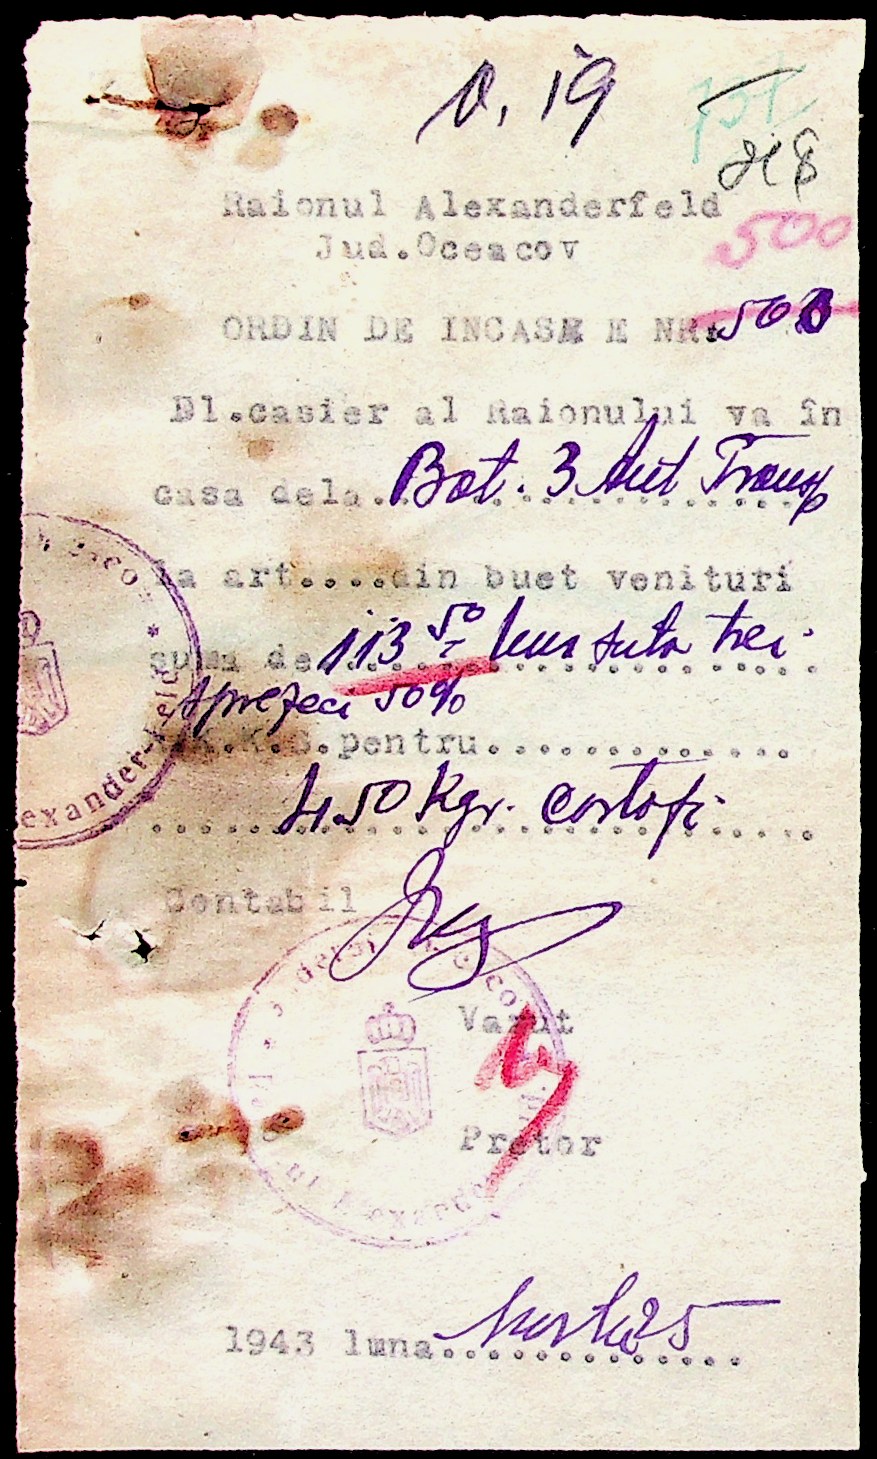 0.19
737
Raionul Alexanderfeld
500
Jud.Oceacov
ORDIN DE INCASARE NR. 500
Dl.casier al Raionului va în
casa dela. Bat. 3 Aut Transp
la art....din buet venituri
suma de 113 50 una suta trei
sprezeci 50%
R.K.K.S.pentru.............
450 Kgr. cartofi
Contabil
Vazut
Pretor
1943 luna Martie 25